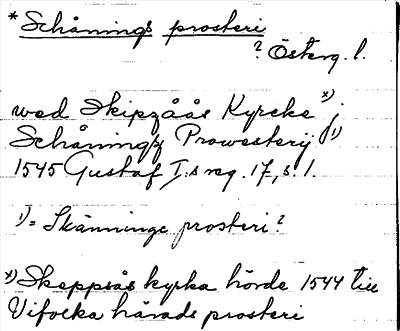 * Schånings prosteri
? Österg. l.
wed Skipzåås Kyrcke x);
Schåningz Prowesterij 1)
1545 Gustaf I:s reg. 17, s. 1.
1) = Skänninge prosteri?
x) Skeppsås kyrka hörde 1544 till
Vifolka härads prosteri